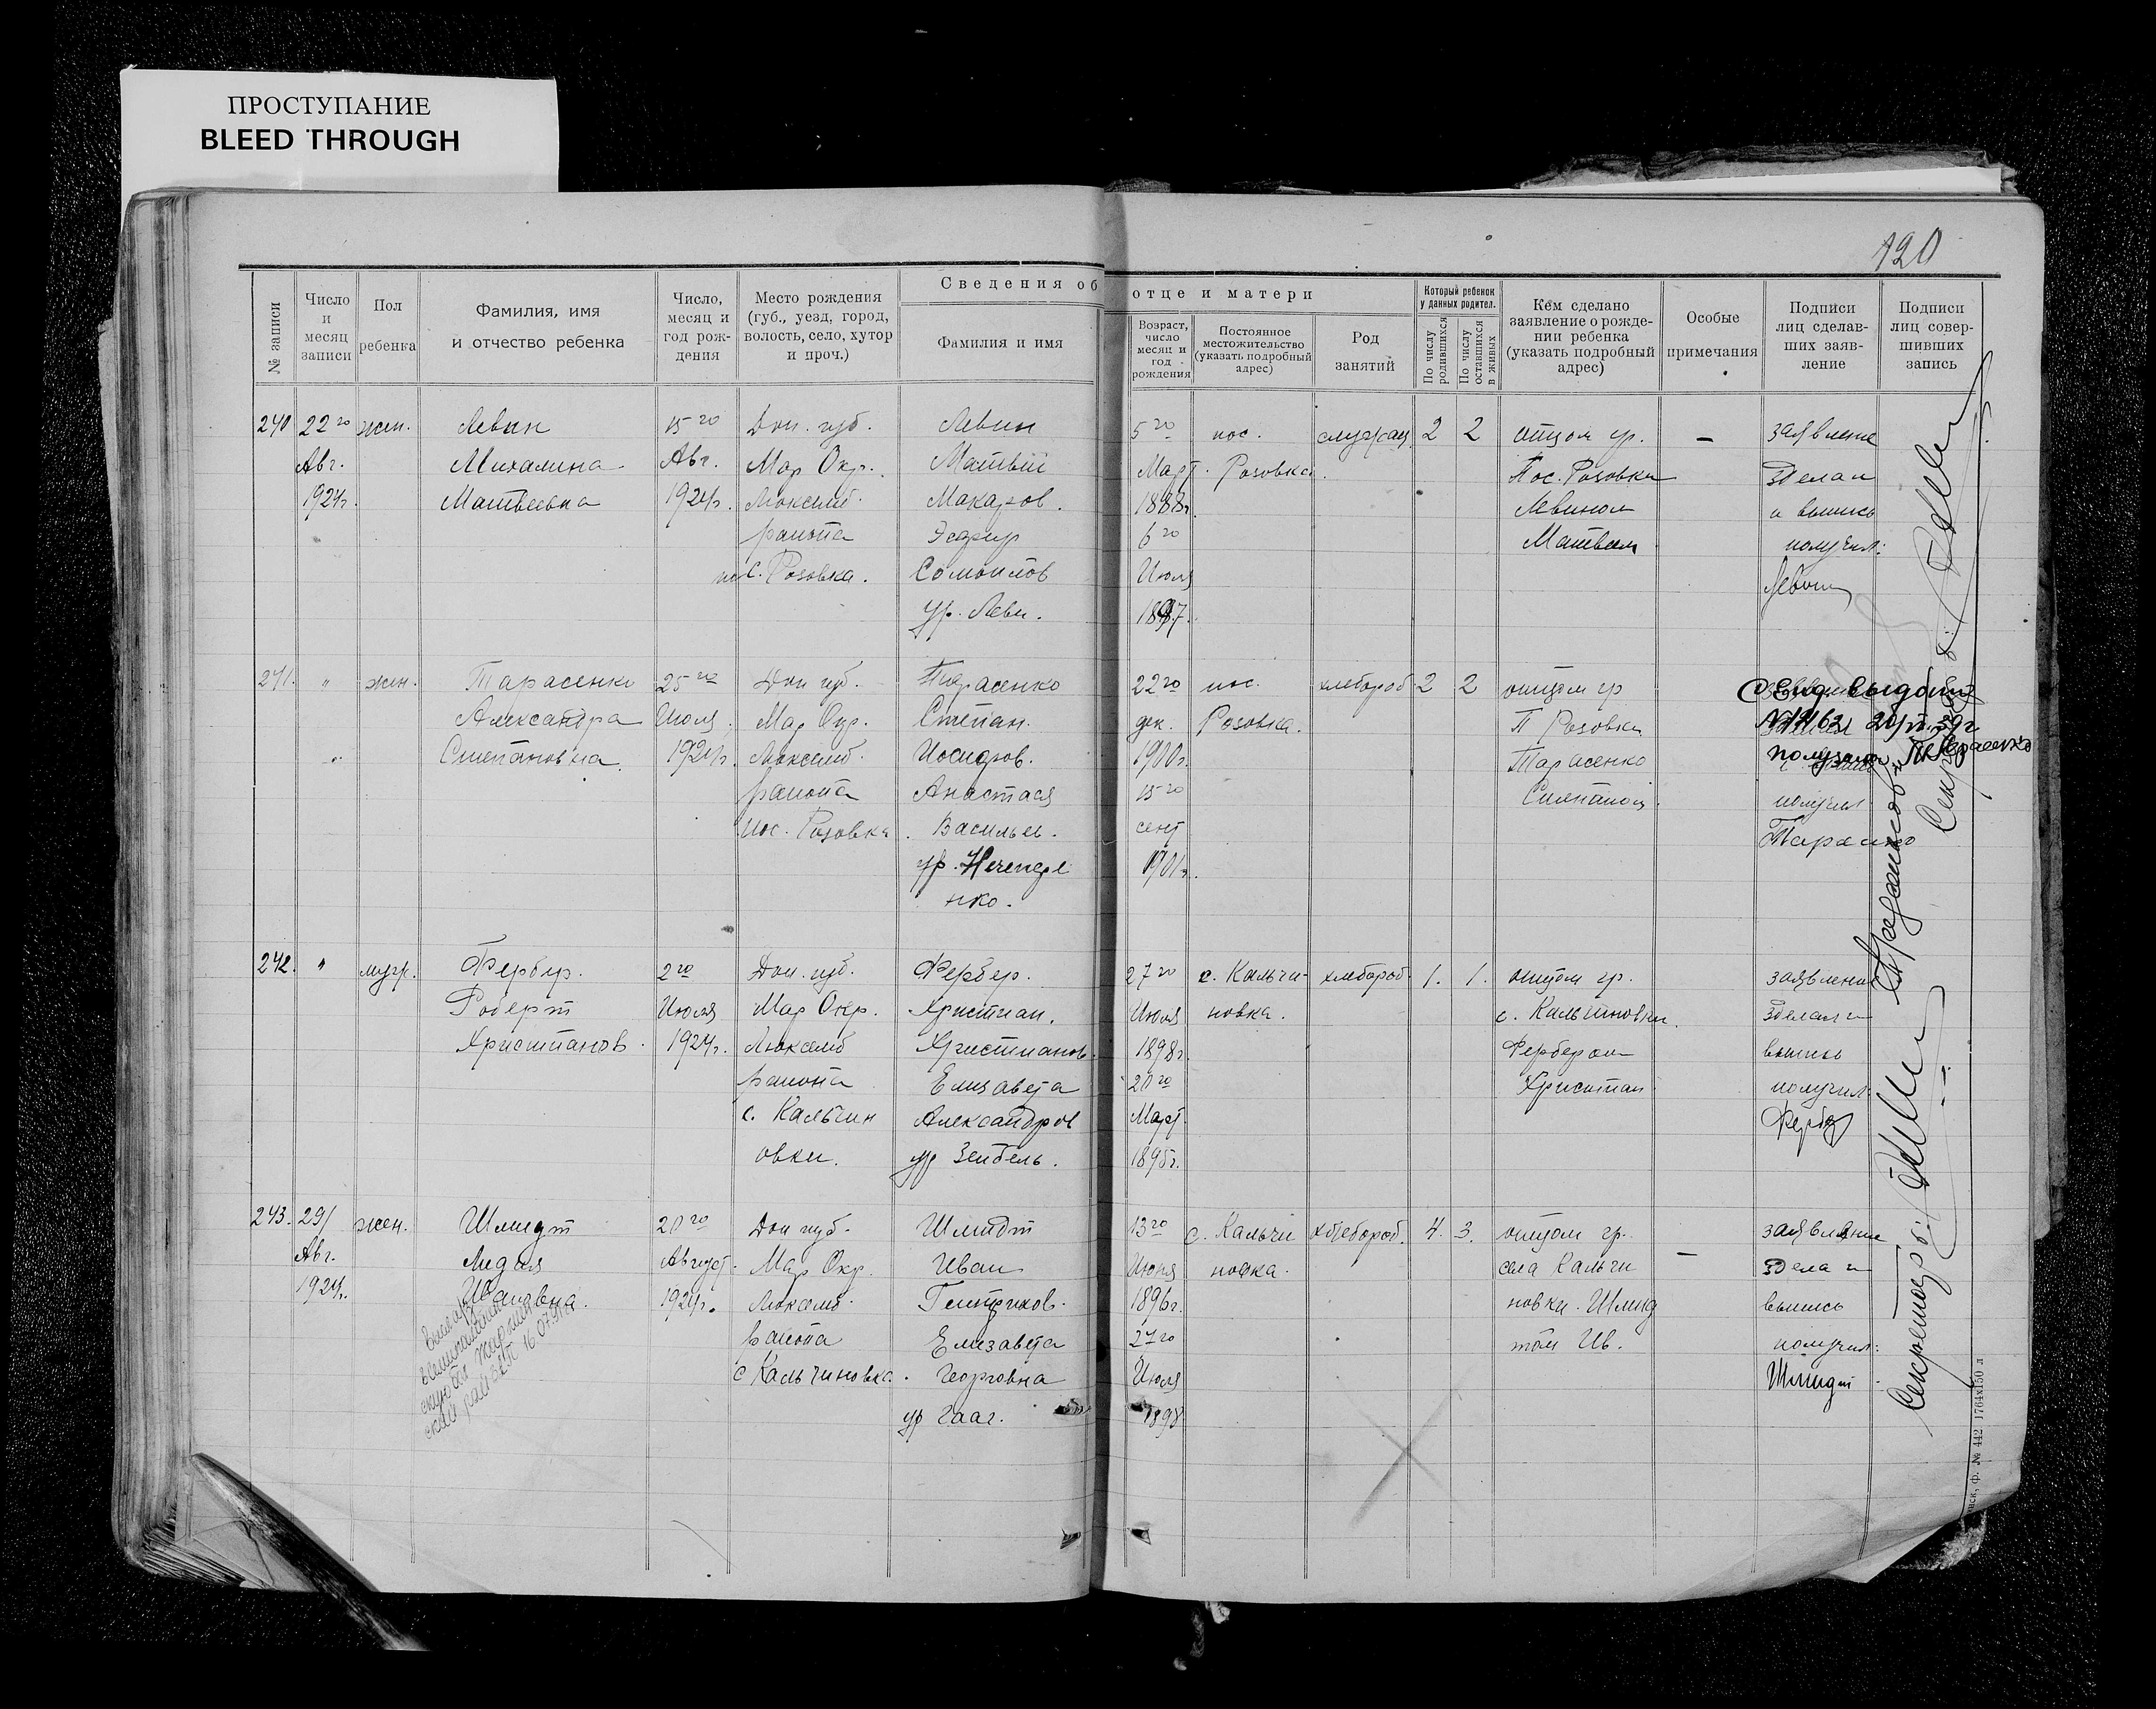 ПРОСТУПАНИЕ
BLEED THROUGH
120
№ записи
Число и месяц записи
Пол ребенка
Фамилия, имя и отчество ребенка
Число, месяц и год рождения
Место рождения (губ., уезд, город, волость, село, хутор и проч.)
Сведения об отце и матери
Фамилия и имя
Возраст, число месяц и год рождения
Постоянное местожительство (указать подробный адрес)
Род занятий
Который ребенок у данных родител.
По числу родившихся
По числу оставшихся в живых
Кем сделано заявление о рождении ребенка (указать подробный адрес)
Особые примечания
Подписи лиц сделавших заявление
Подписи лиц совершивших запись
240 22го жен. Левин 15го Дон. губ. Левин 5го пос. служащ. 2 2 отцом гр. — заявление
Авг. Михалина Авг. Мар Окр. Матвей Март Розовка. Пос. Розовки зделал
1924г. Матвеевна 1924г. Люксемб. Макаров. 1888г. Левином и выпись
района Эсфир 6го Матвеем получил:
пос. Розовка. Сомоилов Июля Левин
ур. Леви. 1897.
241. " жен. Тарасенко 25го Дон губ. Тарасенко 22го пос. хлебороб 2 2 отцом гр
Александра Июля Мар Окр. Степан. дек. Розовка. П Розовки
Степановна 1924г. Люксемб. Иосифов. 1900г. Тарасенко
района Анастася 15го Степаном получил
пос. Розовка. Васильев. сент Тарасенко
ур. 1901г.
нко.
242. " муж. Фербер. 2го Дон. губ. Фербер. 27го с. Кальчи- хлебороб. 1. 1. отцом гр. заявление
Роберт Июля Мар Окр. Христиан. Июля новка. с. Кальчиновки. зделал и
Христианов. 1924г. Люксемб Христианов. 1898г. Фербером выпись
района Елизавета 20го Христиан получил.
с. Кальчин Александров Март. Фербер
овки. ур Зейбель. 1895г.
243. 29/ жен. Шмидт 20го Дон губ. Шмидт 13го с. Кальчи хлебороб. 4. 3. отцом гр. — заявление
Авг. Лидия Август. Мар Окр. Иван Июня новка. села Кальчи здела и
1924г. Ивановна. 1924г. Люксемб. Гейнрихов. 1896г. новки. Шмид выпись
района Елизавета 27го том Ив. получил:
с Кальчиновка. Георговна Июля Шмидт
ур Гааг. 1898
16 07.91г.
Секретарь
№ 442 1764х150 л